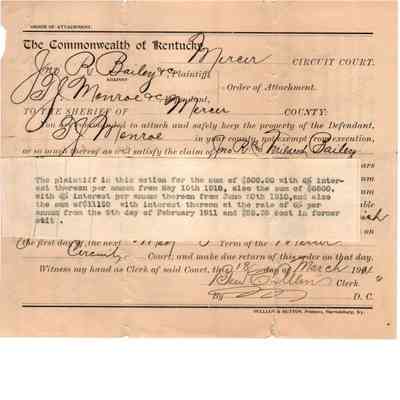 ORDER OF ATTACHMENT.
The Commonwealth of Kentucky, Mercer CIRCUIT COURT.
Jno R. Bailey &c, Plaintiff
AGAINST
Order of Attachment.
B. J. Monroe &c Defendant,
TO THE SHERIFF OF Mercer COUNTY:
You are commanded to attach and safely keep the property of the Defendant,
Monroe in your county, not exempt from execution,
or so much thereof as will satisfy the claim of Jno R. & Milward Bailey
The plaintiff in this action for the sum of $500.00 with 6% inter-
est thereon per annum from May 10th 1910, also the sum of $
with 6% interest per annum thereon from June 20th 1910, and also
the sum of $11110 with interest thereon at the rate of 6% per
annum from the 9th day of February 1911 and cost in former
suit.
the first day of the next May Term of the Mercer
Circuit Court, and make due return of this order on that day.
Witness my hand as Clerk of said Court, this day of March 1911
Ben Clerk
By D. C.
BUTTON, Printers, Harrodsburg, Ky.